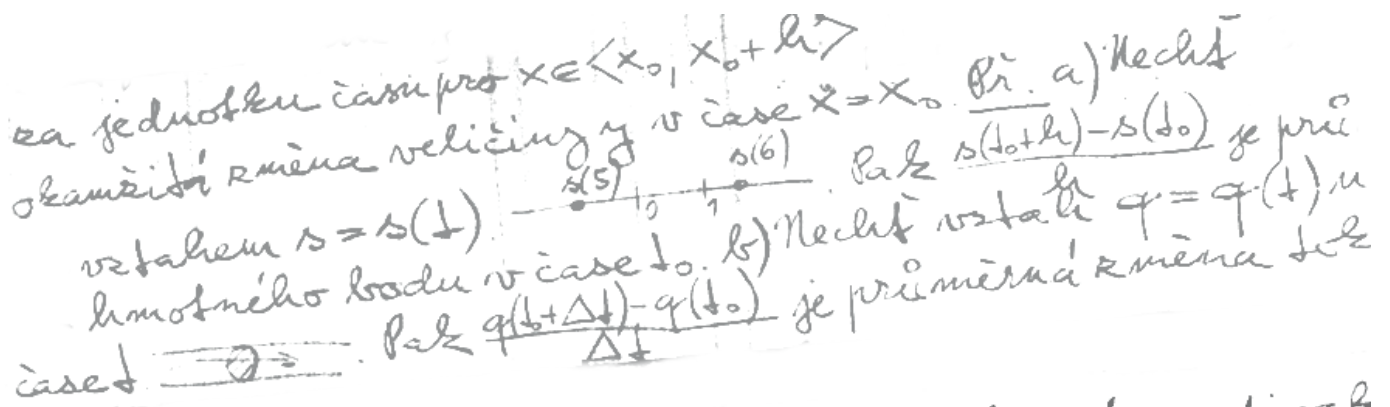 za jednotku času pro x∈<x₀, x₀+h>
okamžitá změna veličiny y v čase x=x₀. Př. a) Nechť
vztahem s=s(t) s(5) 0 1 s(6). Pak (s(t₀+h)-s(t₀))/h je prů
hmotného bodu v čase t₀. b) Nechť vztah q=q(t) u
čase t. Pak (q(t₀+Δt)-q(t₀))/Δt je průměrná změna tok